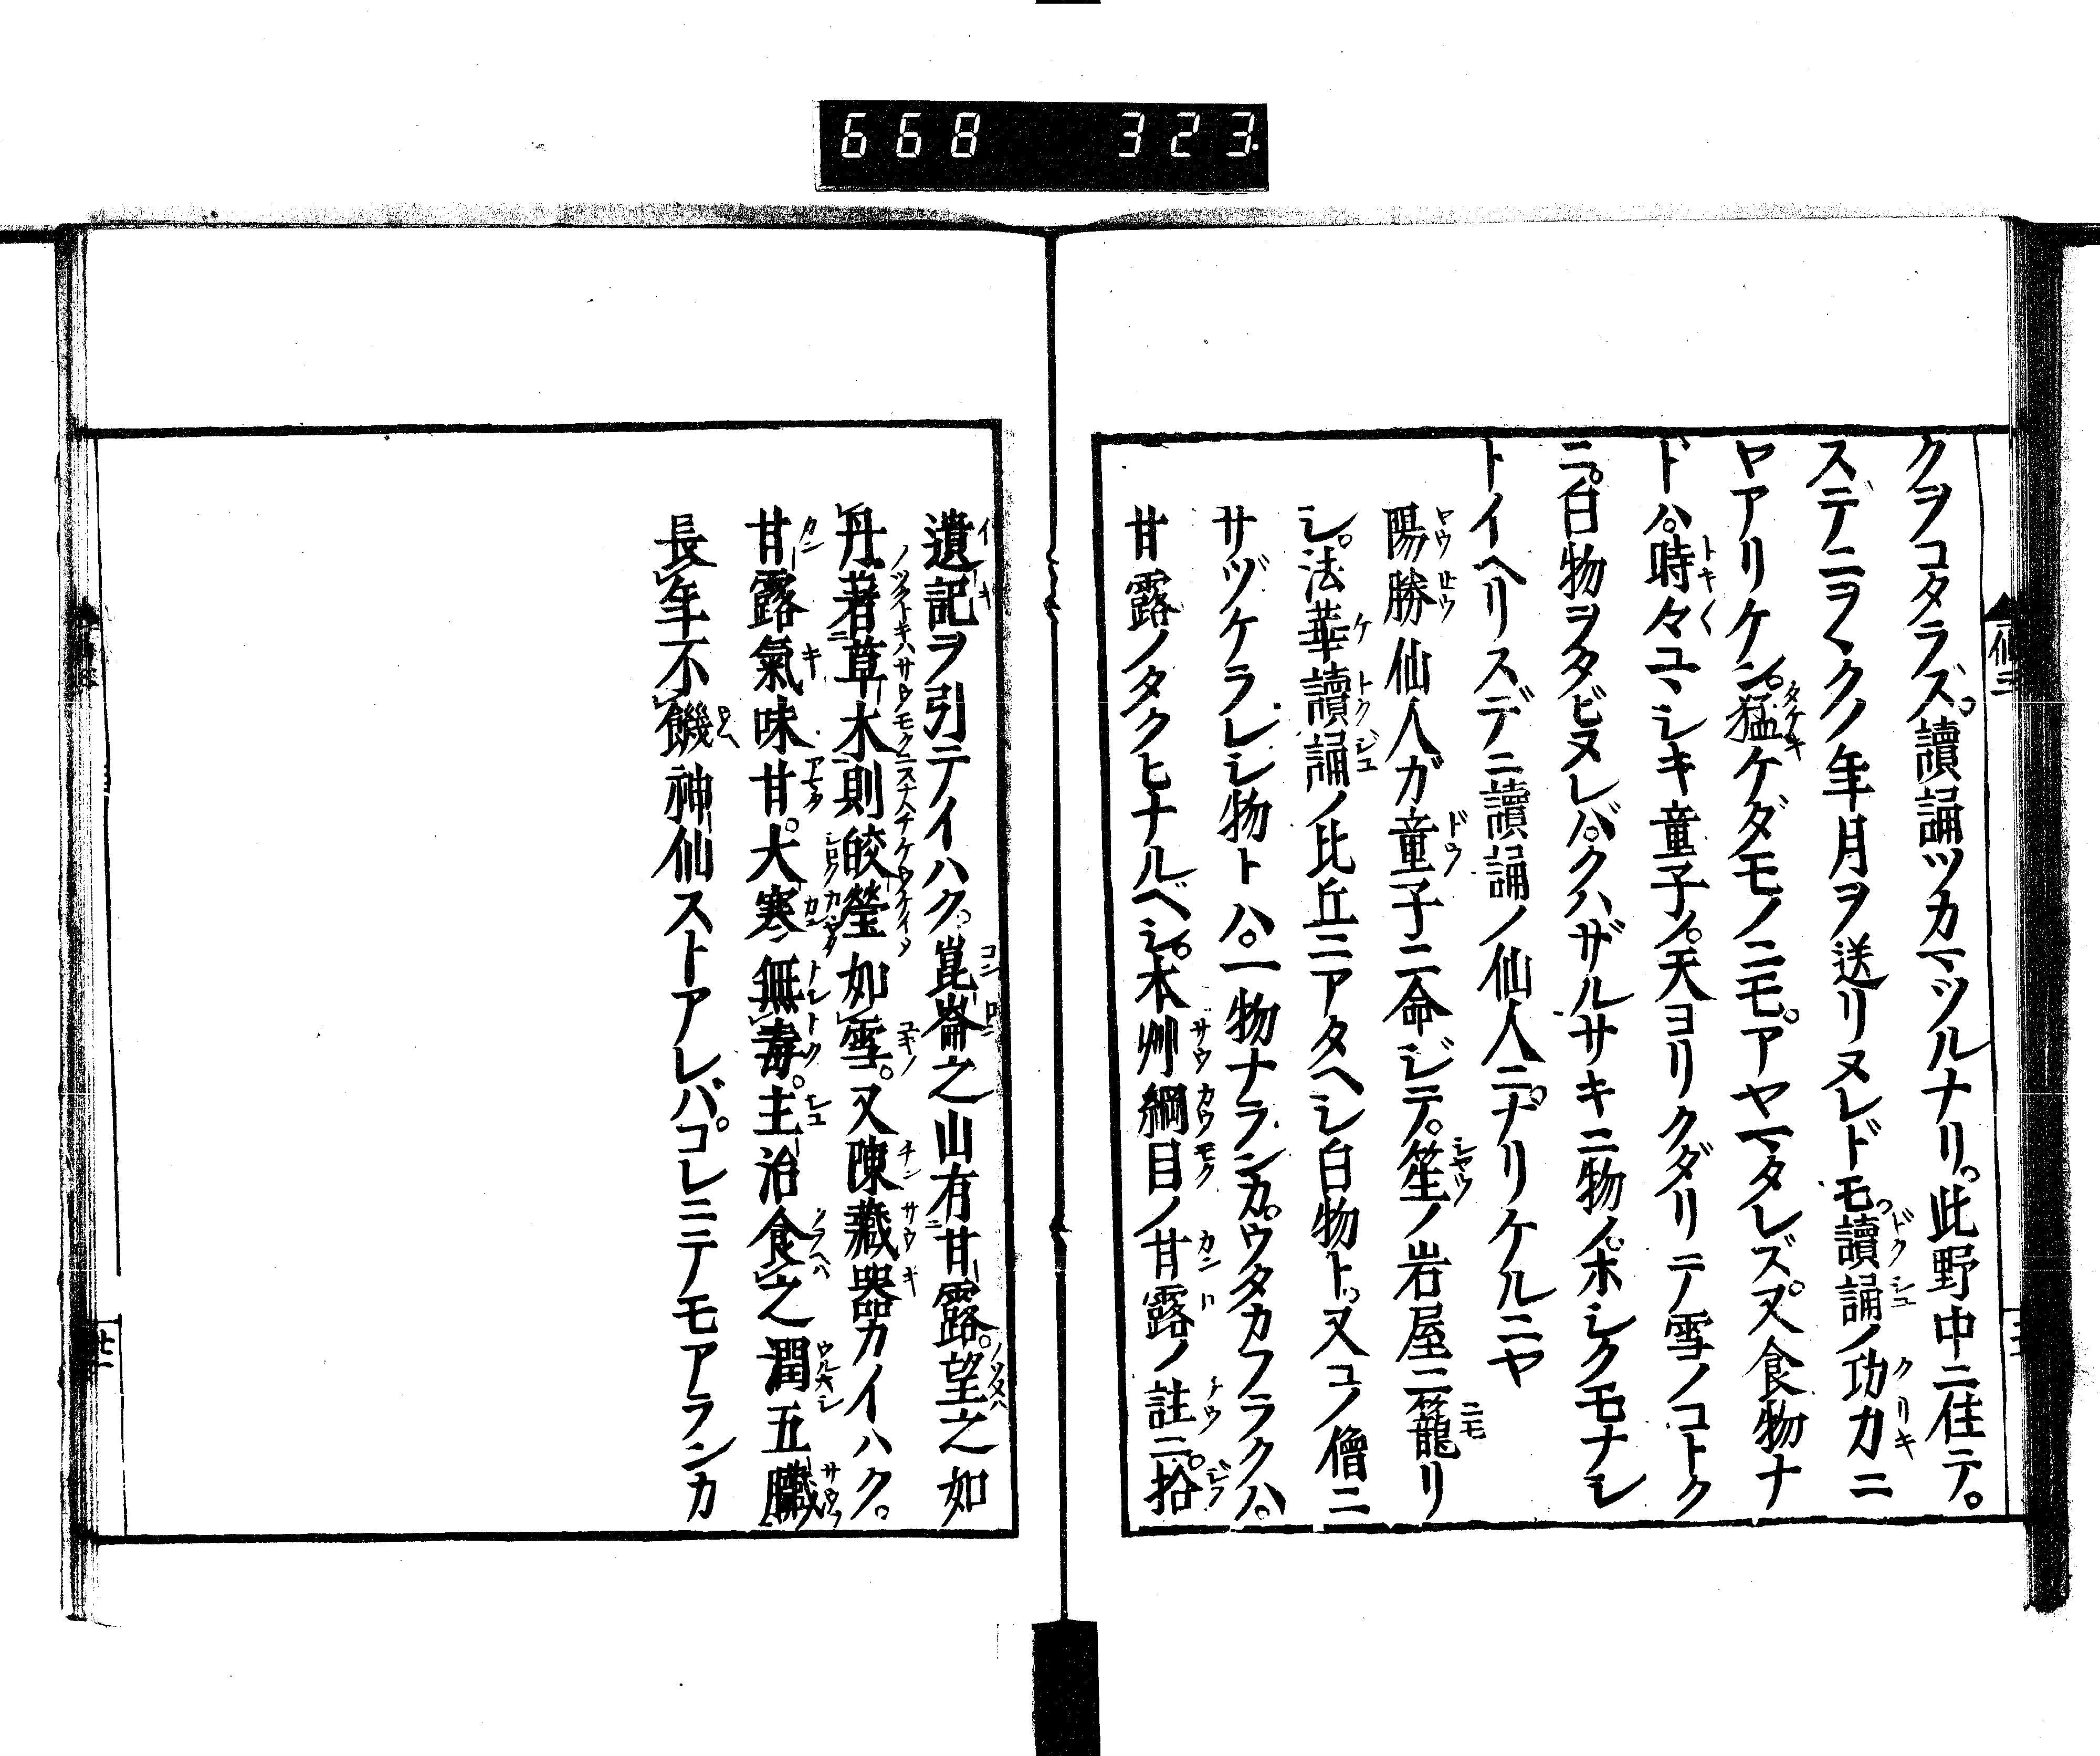 668 323
クヲコタラズ。讀誦ツカマツルナリ。此野中ニ住テ。
スデニヲヽクノ年月ヲ送リヌレドモ。讀誦ノ功力ニ
ヤアリケン。猛ケダモノニモ。アヤマタレズ。又食物ナ
ドハ。時々ユヽシキ童子ノ。天ヨリクダリテ雪ノコトク
ニ。白物ヲタビヌレバ。クハザルサキニ物ノホシクモナシ
トイヘリスデニ讀誦ノ仙人ニ。ナリケルニヤ
陽勝仙人ガ童子ニ命ジテ。笙ノ岩屋ニ籠リ
シ。法華讀誦ノ比丘ニアタヘシ白物ト。又コノ僧ニ
サヅケラレシ物トハ。一物ナランカ。ウタカフラクハ。
甘露ノタクヒナルベシ。本艸綱目ノ甘露ノ註ニ。拾
遺記ヲ引テイハク。崑崙之山有甘露。望之如
丹著草木則皎瑩如雪。又陳藏器カイハク。
甘露氣味甘。大寒無毒。主治食之潤五臟
長年不饑神仙ストアレバ。コレニテモアランカ